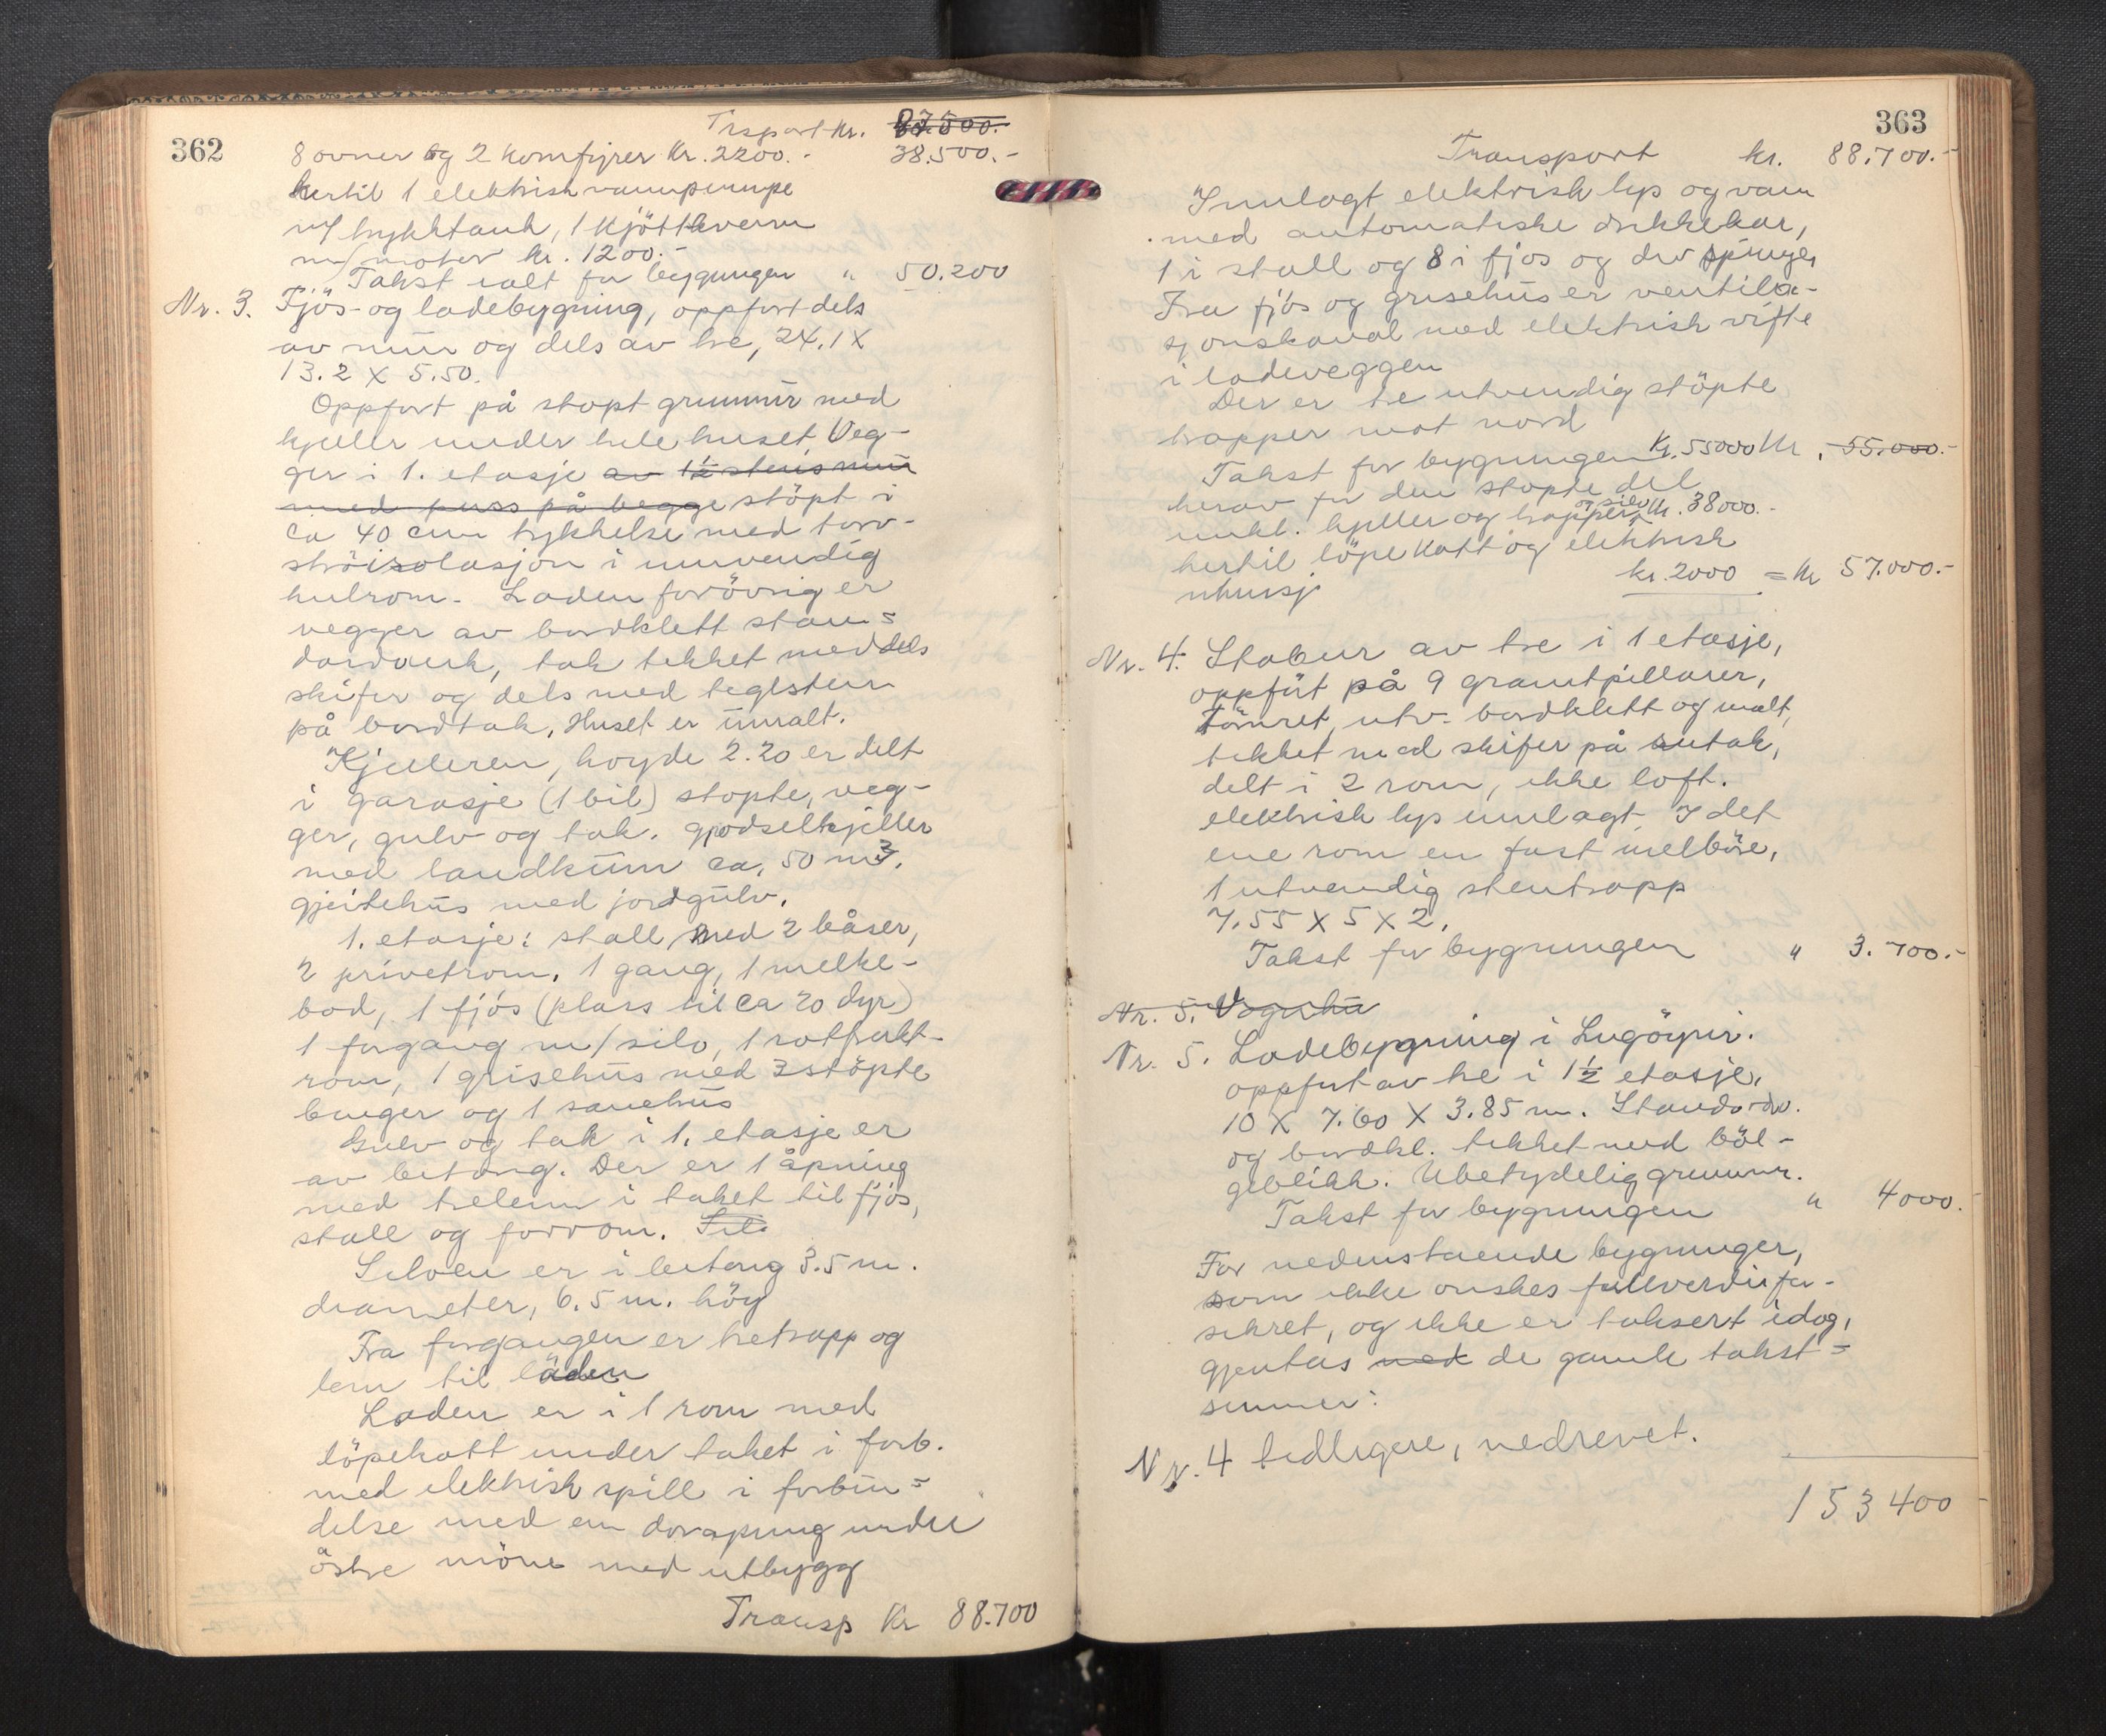 362
Trsport Kr. 87.500.-
8 ovner og 2 komfyrer Kr. 2200.- 38.500.-
hertil 1 elektrisk vannpumpe
m/ trykktank, 1 Kjöttkvern
m/motor kr. 1200.-
Takst ialt for bygningen " 50.200
Nr. 3. Fjös- og ladebygning, oppfört dels
av mur og dels av tre, 24.1 X
13.2 X 5.50.
Oppfört på stöpt grunnmur med
kjeller under hele huset Veg-
ger i 1. etasje av 1½ steins mur
med puss på begge stöpt i
ca 40 cm tykkelse med torv-
ströisolasjon i innvendig
hulrom. Laden forövrig er
vegger av bordklett stan=
dardverk, tak tekket med dels
skifer og dels med teglstein
på bordtak, Huset er umalt.
Kjelleren, höyde 2.20 er delt
i garasje (1 bil) stöpte, veg-
ger, gulv og tak. gjödselkjeller
med landkum ca. 50 m3.
gjeitehus med jordgulv.
1. etasje: stall med 2 båser,
2 privetrom, 1 gang, 1 melke-
bod, 1 fjös (plass til ca 20 dyr)
1 forgang m/silo, 1 rotfrukt-
rom, 1 grisehus med 3 stöpte
binger og 1 sauehus
Gulv og tak i 1. etasje er
av betong. Der er 1 åpning
med trelem i taket til fjös,
stall og forrom. Sil
Siloen er i betong 3.5 m.
diameter, 6.5 m. hög
Fra forgangen er tretrapp og
lem til laden
Laden er i 1 rom med
löpekatt under taket i forb.
med elektrisk spill i forbin=
delse med en doråpning under
östre möne med utbygg
Transp Kr 88.700
363
Transport kr. 88.700.-
Innlagt elektrisk lys og vann
med automatiske drikkekar,
1 i stall og 8 i fjös og div springer
Fra fjös og grisehus er ventila-
sjonskanal med elektrisk vifte
i ladeveggen
Der er to utvendig stöpte
trapper mot nord
Takst for bygningen Kr. 55000 Kr. 55.000.-
herav for den stöpte del
inkl. kjeller og trapper og silo Kr. 38000.-
hertil löpekatt og elektrisk
kr. 2000 = Kr 57.000.-
Nr. 4. Stabur av tre i 1 etasje,
oppfört på 9 granitpillarer,
Tömret, utv. bordklett og malt,
tekket med skifer på sutak,
delt i 2 rom, ikke loft.
elektrisk lys innlagt. I det
ene rom en fast melböre,
1 utvendig stentrapp
7.55 X 5 X 2.
Takst for bygningen " 3.700.-
Nr. 5. Vognhu
Nr. 5. Ladebygning i
oppfört av tre i 1½ etasje.
10 X 7.60 X 3.85 m. Standardv.
og bordkl. tekket med böl-
geblikk. Ubetydelig grunnmr.
Takst for bygningen " 4000.
For nedenstaende bygninger,
som ikke önskes fullverdifor-
sikret, og ikke er taksert idag,
gjentas med de gamle takst=
summer:
Nr. 4 tidligere, nedrevet.
153400